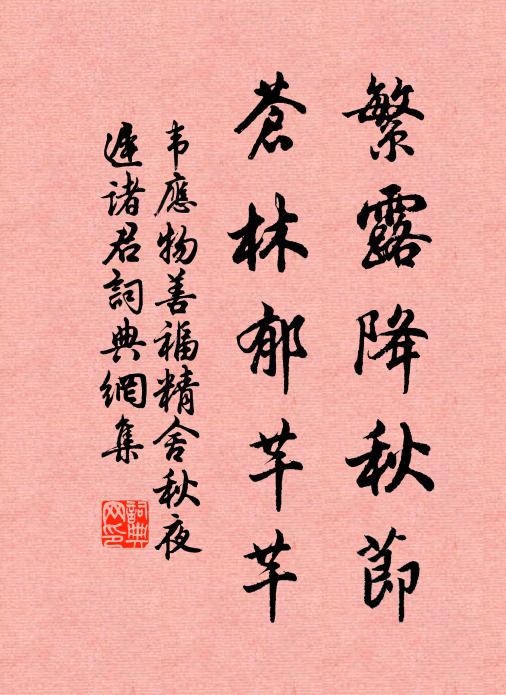 繁露降秋節
蒼林郁芊芊
韦應物善福精舍秋夜
遲諸君詞典網集
詞典
网印